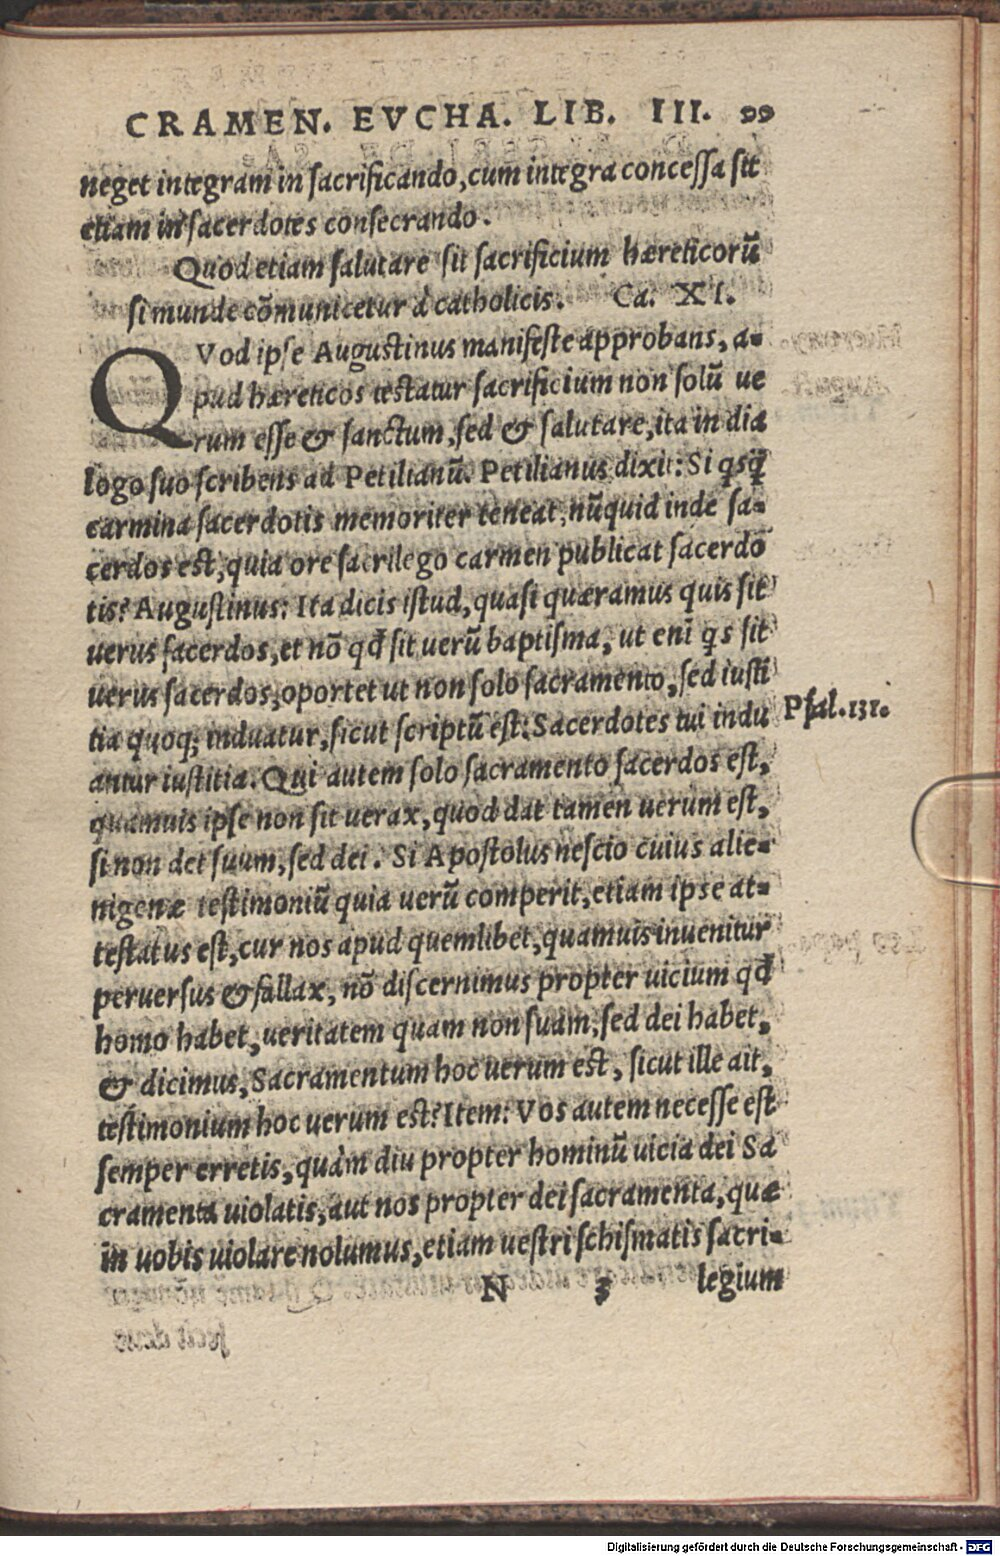 CRAMEN. EVCHA. LIB. III. 99
neget integram in sacrificando, cum integra concessa sit
etiam in sacerdotes consecrando.
Quod etiam salutare sit sacrificium hæreticorũ
si munde cõmunicetur à catholicis. Ca. XI.
QVod ipse Augustinus manifeste approbans, a-
pud hæreticos testatur sacrificium non solũ ue
rum esse & sanctum, sed & salutare, ita in dia
logo suo scribens ad Petilianũ. Petilianus dixit: Si qsq̃
carmina sacerdotis memoriter teneat, nũquid inde sa-
cerdos est, quia ore sacrilego carmen publicat sacerdo
tis? Augustinus: Ita dicis istud, quasi quæramus quis sit
uerus sacerdos, et nõ qđ sit uerũ baptisma, ut enĩ qs sit
uerus sacerdos, oportet ut non solo sacramento, sed iusti
tia quoq; induatur, sicut scriptũ est: Sacerdotes tui indu
Psal. 131.
antur iustitia. Qui autem solo sacramento sacerdos est,
quamuis ipse non sit uerax, quod dat tamen uerum est,
si non det suum, sed dei. Si Apostolus nescio cuius alie-
nigenæ testimoniũ quia uerũ comperit, etiam ipse at-
testatus est, cur nos apud quemlibet, quamuis inuenitur
peruersus & fallax, nõ discernimus propter uicium qđ
homo habet, ueritatem quam non suam, sed dei habet,
& dicimus, Sacramentum hoc uerum est, sicut ille ait,
testimonium hoc uerum est? Item: Vos autem necesse est
semper erretis, quàm diu propter hominũ uicia dei Sa
cramenta uiolatis, aut nos propter dei sacramenta, quæ
in uobis uiolare nolumus, etiam uestri schismatis sacri-
N 3 legium
Digitalisierung gefördert durch die Deutsche Forschungsgemeinschaft - DFG